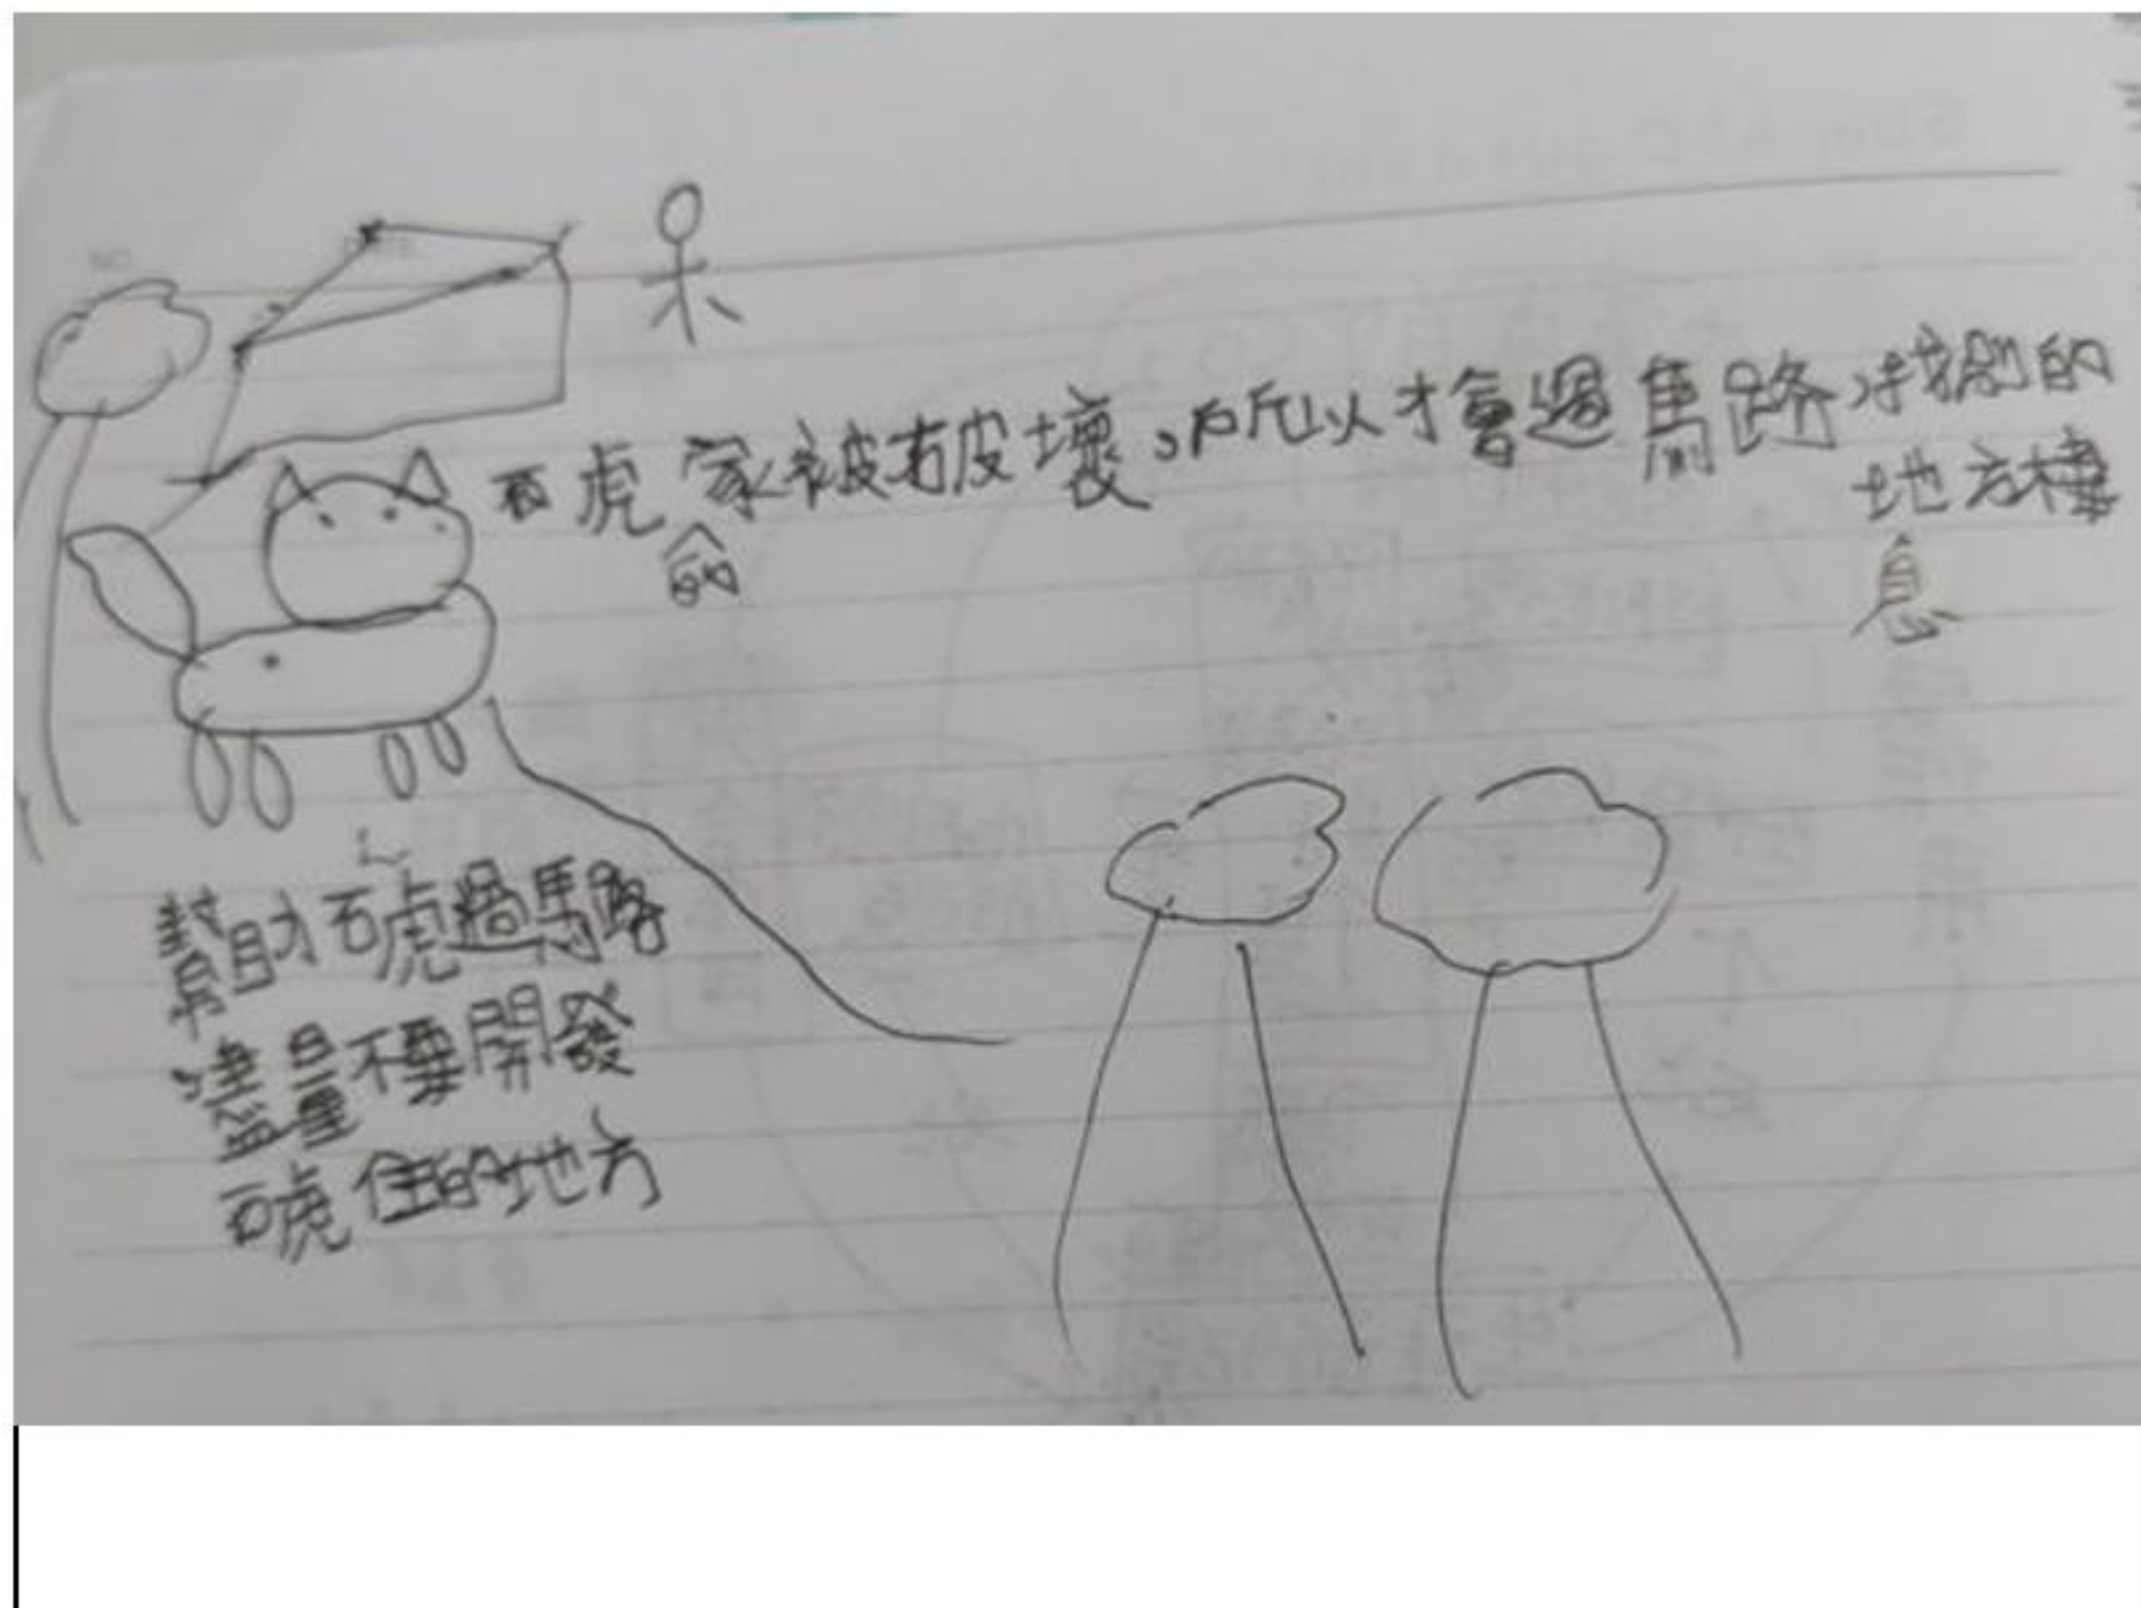 石虎的家被破壞，所以才會過馬路，找別的
地方棲
息
幫助石虎過馬路
儘量不要開發
石虎住的地方